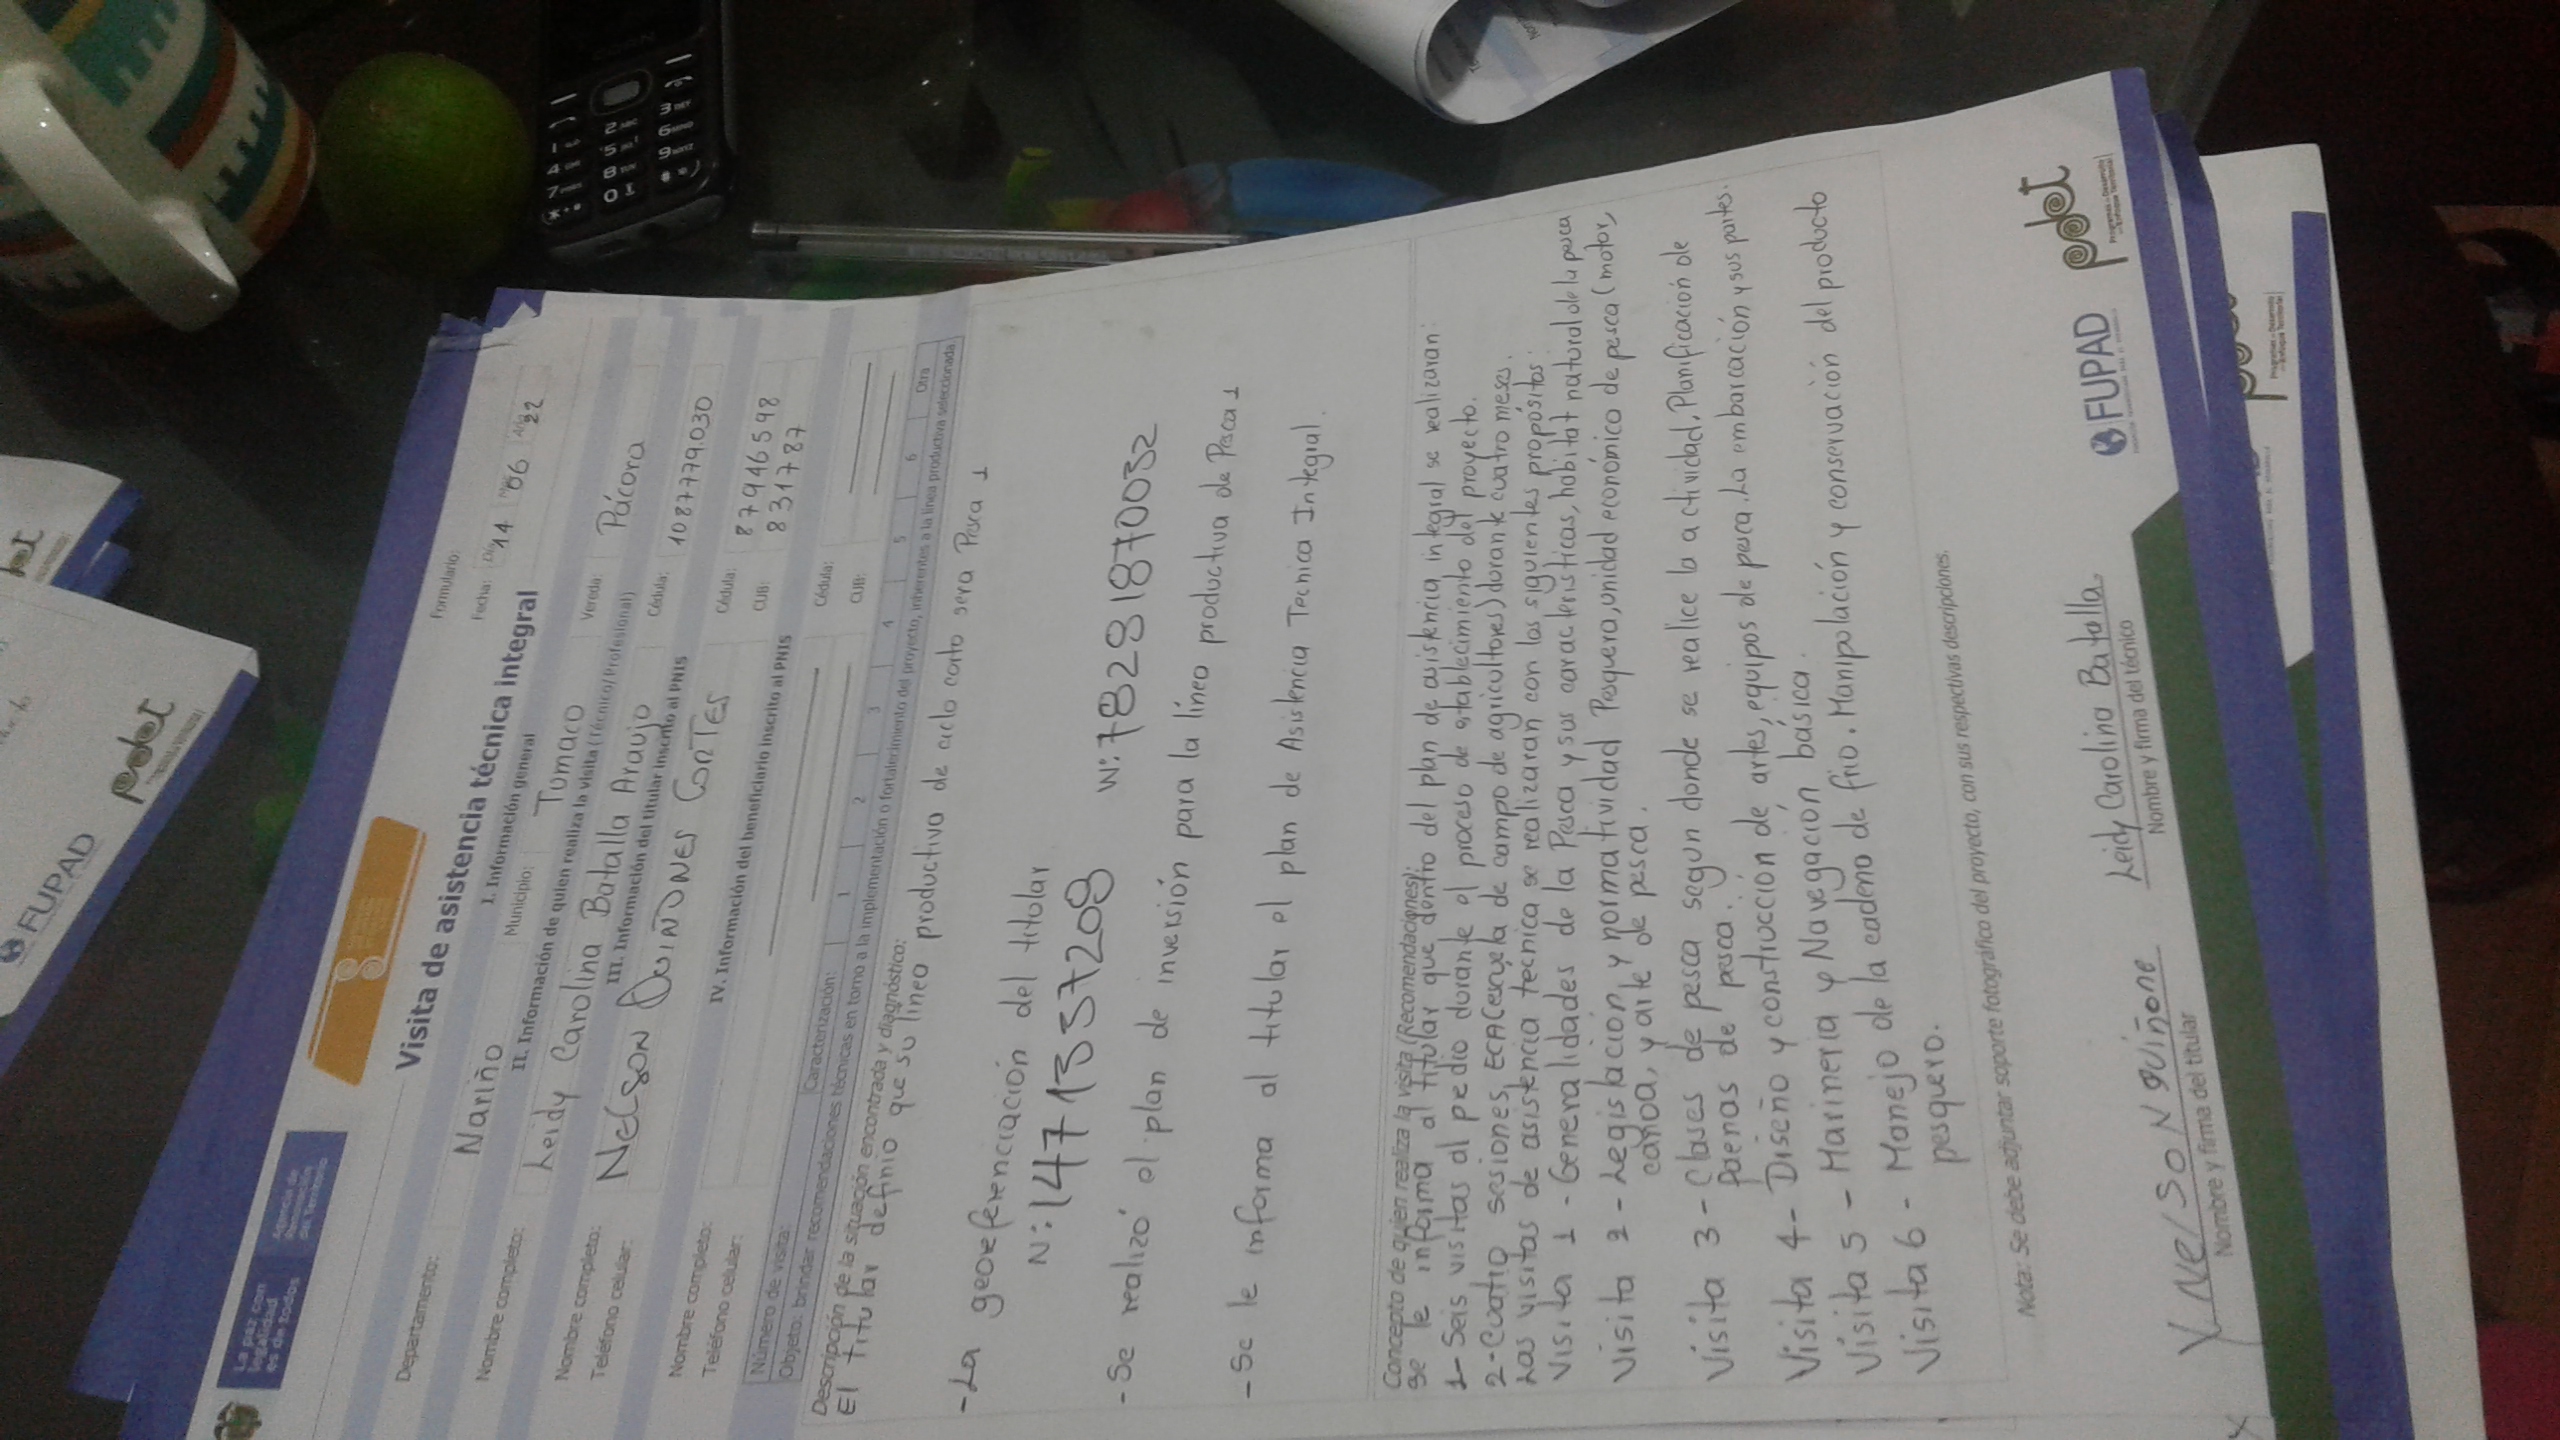 La paz con
legalidad
es de todos
Agencia de
Renovación
del Territorio
Visita de asistencia técnica integral
Formulario:
Fecha: Día 14 Mes 06 Año 22
I. Información general
Departamento: Nariño Municipio: Tumaco Vereda: Pácora
II. Información de quien realiza la visita (Técnico/Profesional)
Nombre completo: Leidy Carolina Batalla Araujo Cédula: 1087779.030
III. Información del titular inscrito al PNIS
Nombre completo: NELSON QUINONES CORTES Cédula: 87946598
Teléfono celular: CUB: 831787
IV. Información del beneficiario inscrito al PNIS
Nombre completo: Cédula:
Teléfono celular: CUB:
Número de visita: Caracterización: 1 2 3 4 5 6 Otra
Objeto: brindar recomendaciones técnicas en torno a la implementación o fortalecimiento del proyecto, inherentes a la línea productiva seleccionada
Descripción de la situación encontrada y diagnóstico:
El titular definio que su lineo productivo de ciclo corto sera Pesca 1
- La georeferenciación del titular
N: 147 1337208 W: 78281870032
- Se realizó el plan de inversión para la líneo productiva de Pesca 1
- Se le informa al titular el plan de Asistencia Tecnica Integral.
Concepto de quien realiza la visita (Recomendaciones):
se le informa al titular que dentro del plan de asistencia integral se realizaran:
1- Seis visitas al predio durante el proceso de establecimiento del proyecto.
2- Cuatro sesiones ECA(escuela de campo de agricultores) durante cuatro meses.
Las visitas de asistencia tecnica se realizaran con los siguientes propósitos:
Visita 1 - Generalidades de la Pesca y sus caracteristicas, habitat natural de la pesca
Visita 2 - Legislacion y normatividad Pesquera, unidad económico de pesca (motor,
canoa, y arte de pesca.
Visita 3 - Clases de pesca segun donde se realice la actividad, Planificación de
faenas de pesca.
Visita 4 - Diseño y construcción de artes, equipos de pesca. La embarcación y sus partes.
Visita 5 - Marineria y Navegación básica.
Visita 6 - Manejo de la cadena de frio. Manipulación y conservación del producto
pesquero.
Nota: Se debe adjuntar soporte fotográfico del proyecto, con sus respectivas descripciones.
X NelsoN quiñone
Nombre y firma del titular
Leidy Carolina Batalla.
Nombre y firma del técnico
FUPAD
pdet
Programas de Desarrollo
con Enfoque Territorial
FUPAD
pdet